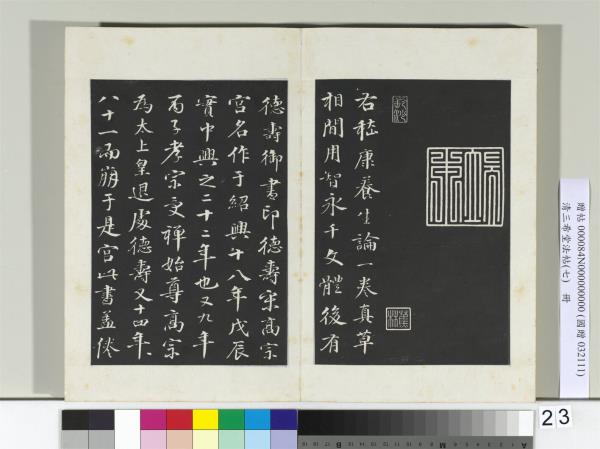 右嵇康養生論一卷真草
相間用智永千文體後有
德壽御書印德壽宋高宗
宮名作于紹興十八年戊辰
實中興之二十二年也又九年
丙子孝宗受禪始尊高宗
為太上皇退處德壽又十四年
八十一而崩于是宮此書蓋倦
贈帖 000084N000000000 (國贈 032111)
清三希堂法帖(七) 冊
23